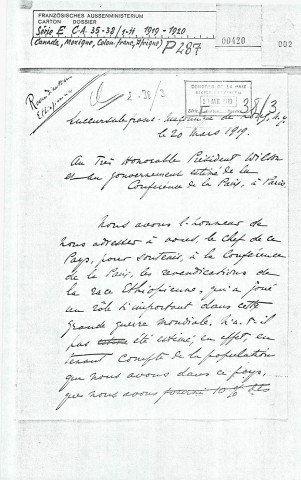 FRANZÖSISCHES AUSSENMINISTERIUM
CARTON DOSSIER
Série E C-A. 35-38/1-11 1919-1920
(Canada, Mexique, Colon. franc., Afrique) P 287
00420 002
Revendication
Ethiopienne
38/3
2 AVR 1919
38/3
Succursale pour
le 20 mars 1919.
Au Très Honorable Président Wilson
et au gouvernement estimé de la
Conférence de la Paix, à Paris.
Nous avons l'honneur de
nous adresser à vous, le chef de ce
Pays, pour soutenir, à la Conférence
de la Paix, les revendications de
la race Ethiopienne, qui a joué
un rôle si important dans cette
grande guerre mondiale, n'a-t-il
pas été estimé, en effet, en
tenant compte de la population
que nous avons dans ce pays,
que nous avons fourni 10 % des